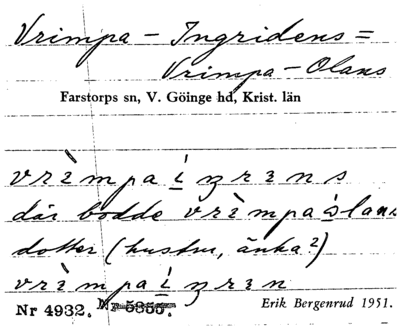 Vrimpa - Ingridens =
Vrimpa - Olans
Farstorps sn, V. Göinge hd, Krist. län
vrìmpa í ŋrəns
där bodde vrìmpaɷ́lans
dotter (hustru, änka?)
vrìmpa í ŋrən
Nr 4932. Nr 5355.
Erik Bergenrud 1951.